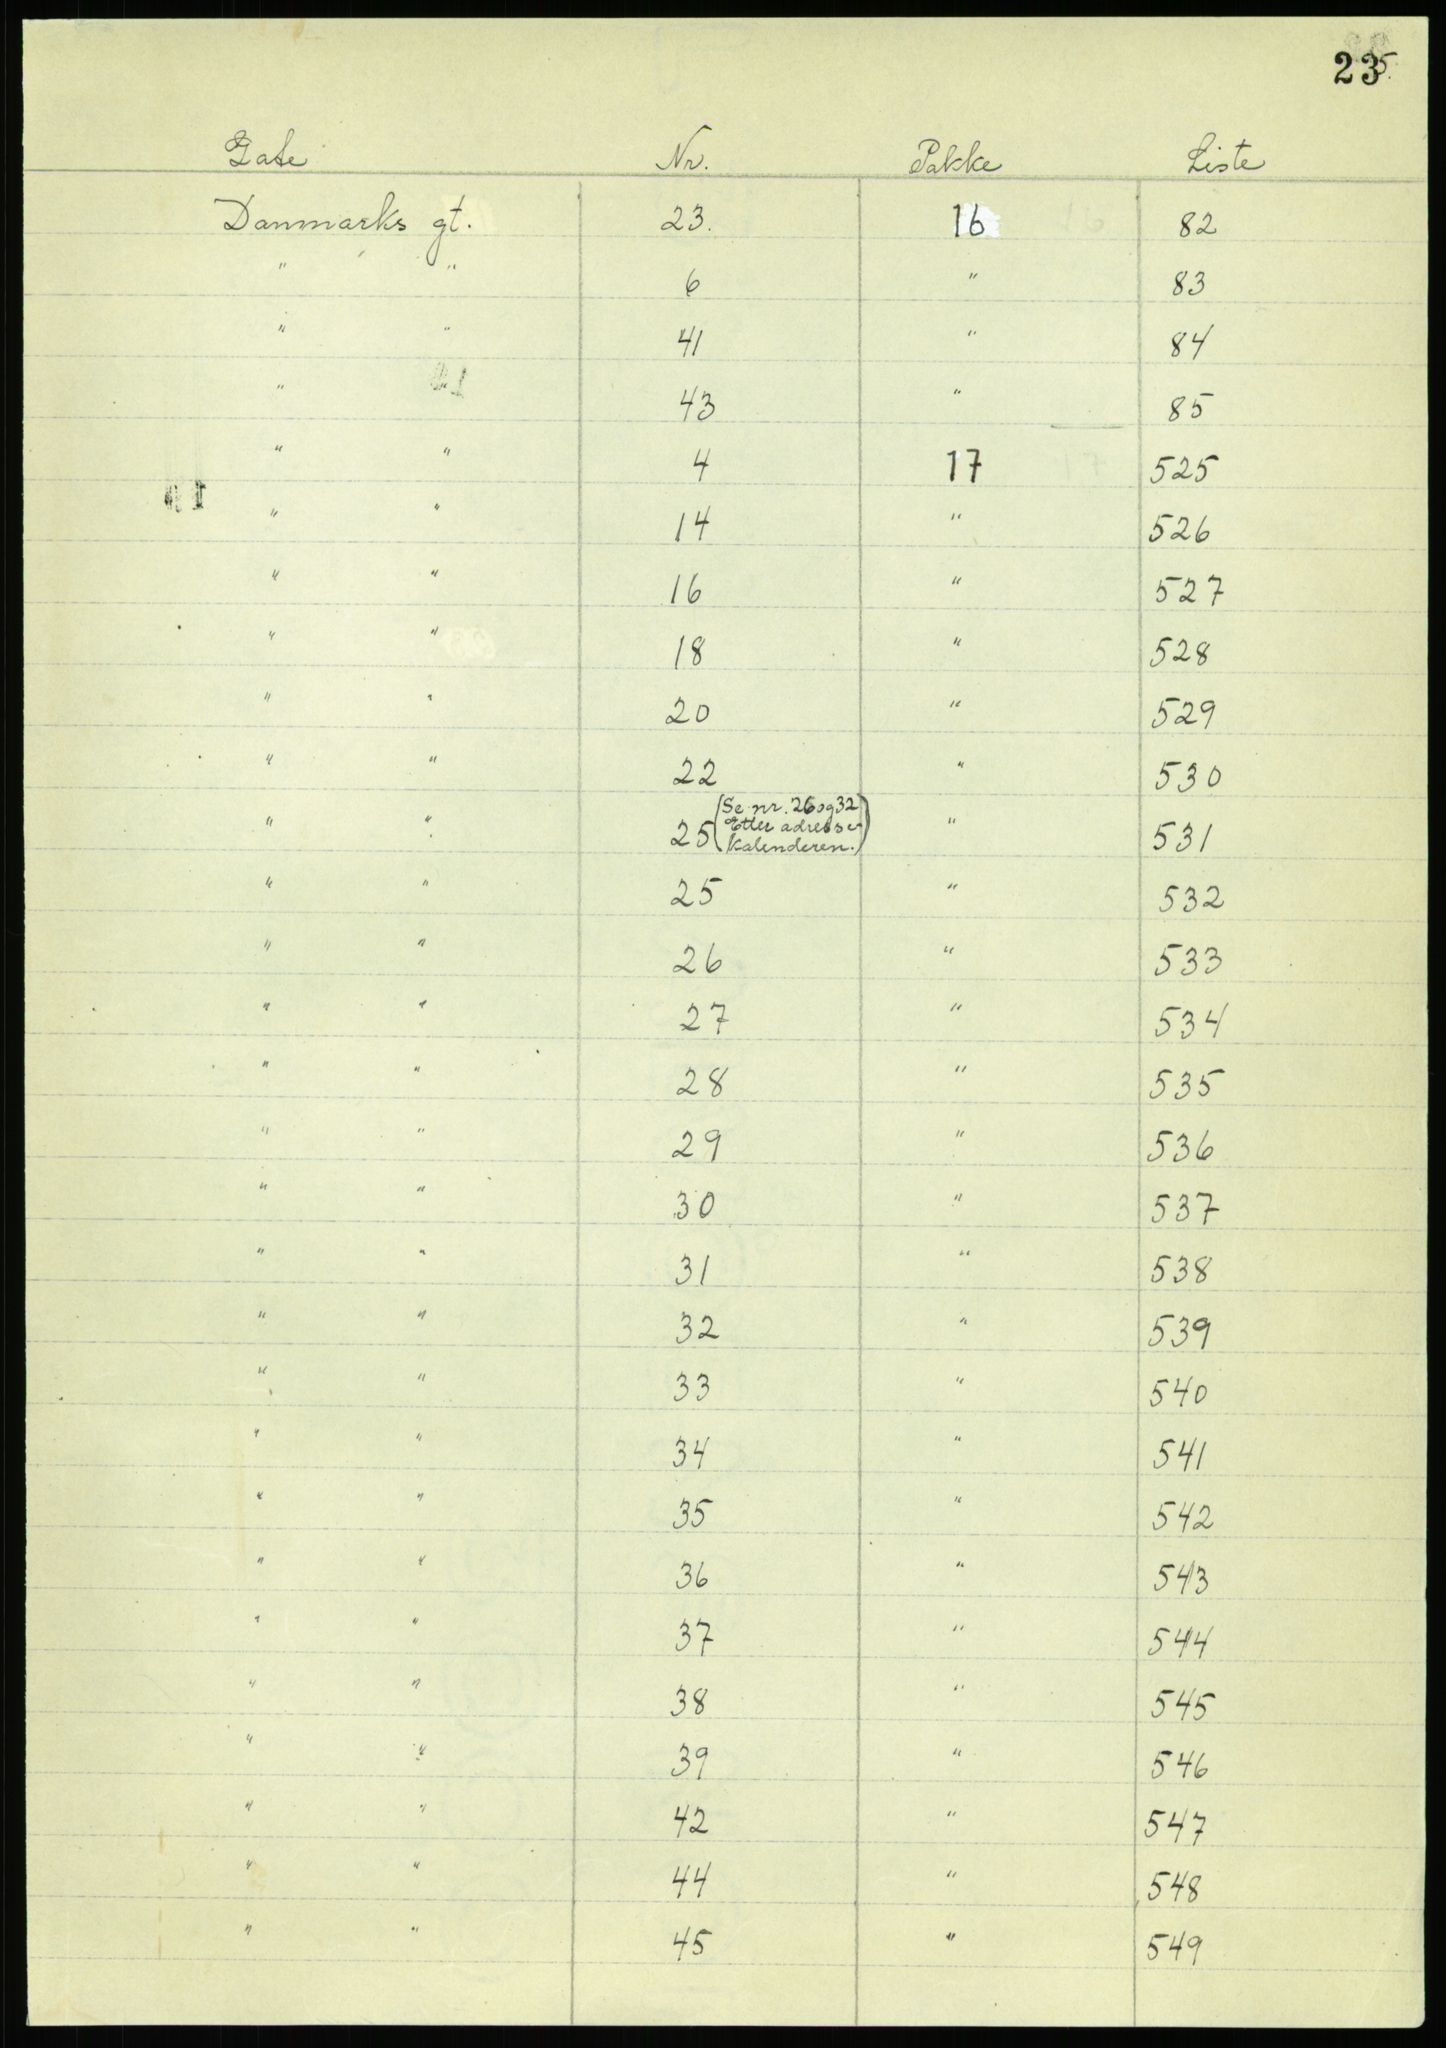 23
Gate Nr. Pakke Liste
Danmarks gt. 23. 16 82
" " 6 " 83
" " 41 " 84
" " 43 " 85
" " 4 17 525
" " 14 " 526
" " 16 " 527
" " 18 " 528
" " 20 " 529
" " 22 " 530
" " 25 (Se nr. 26 og 32 Etter adresse- kalenderen.) " 531
" " 25 " 532
" " 26 " 533
" " 27 " 534
" " 28 " 535
" " 29 " 536
" " 30 " 537
" " 31 " 538
" " 32 " 539
" " 33 " 540
" " 34 " 541
" " 35 " 542
" " 36 " 543
" " 37 " 544
" " 38 " 545
" " 39 " 546
" " 42 " 547
" " 44 " 548
" " 45 " 549